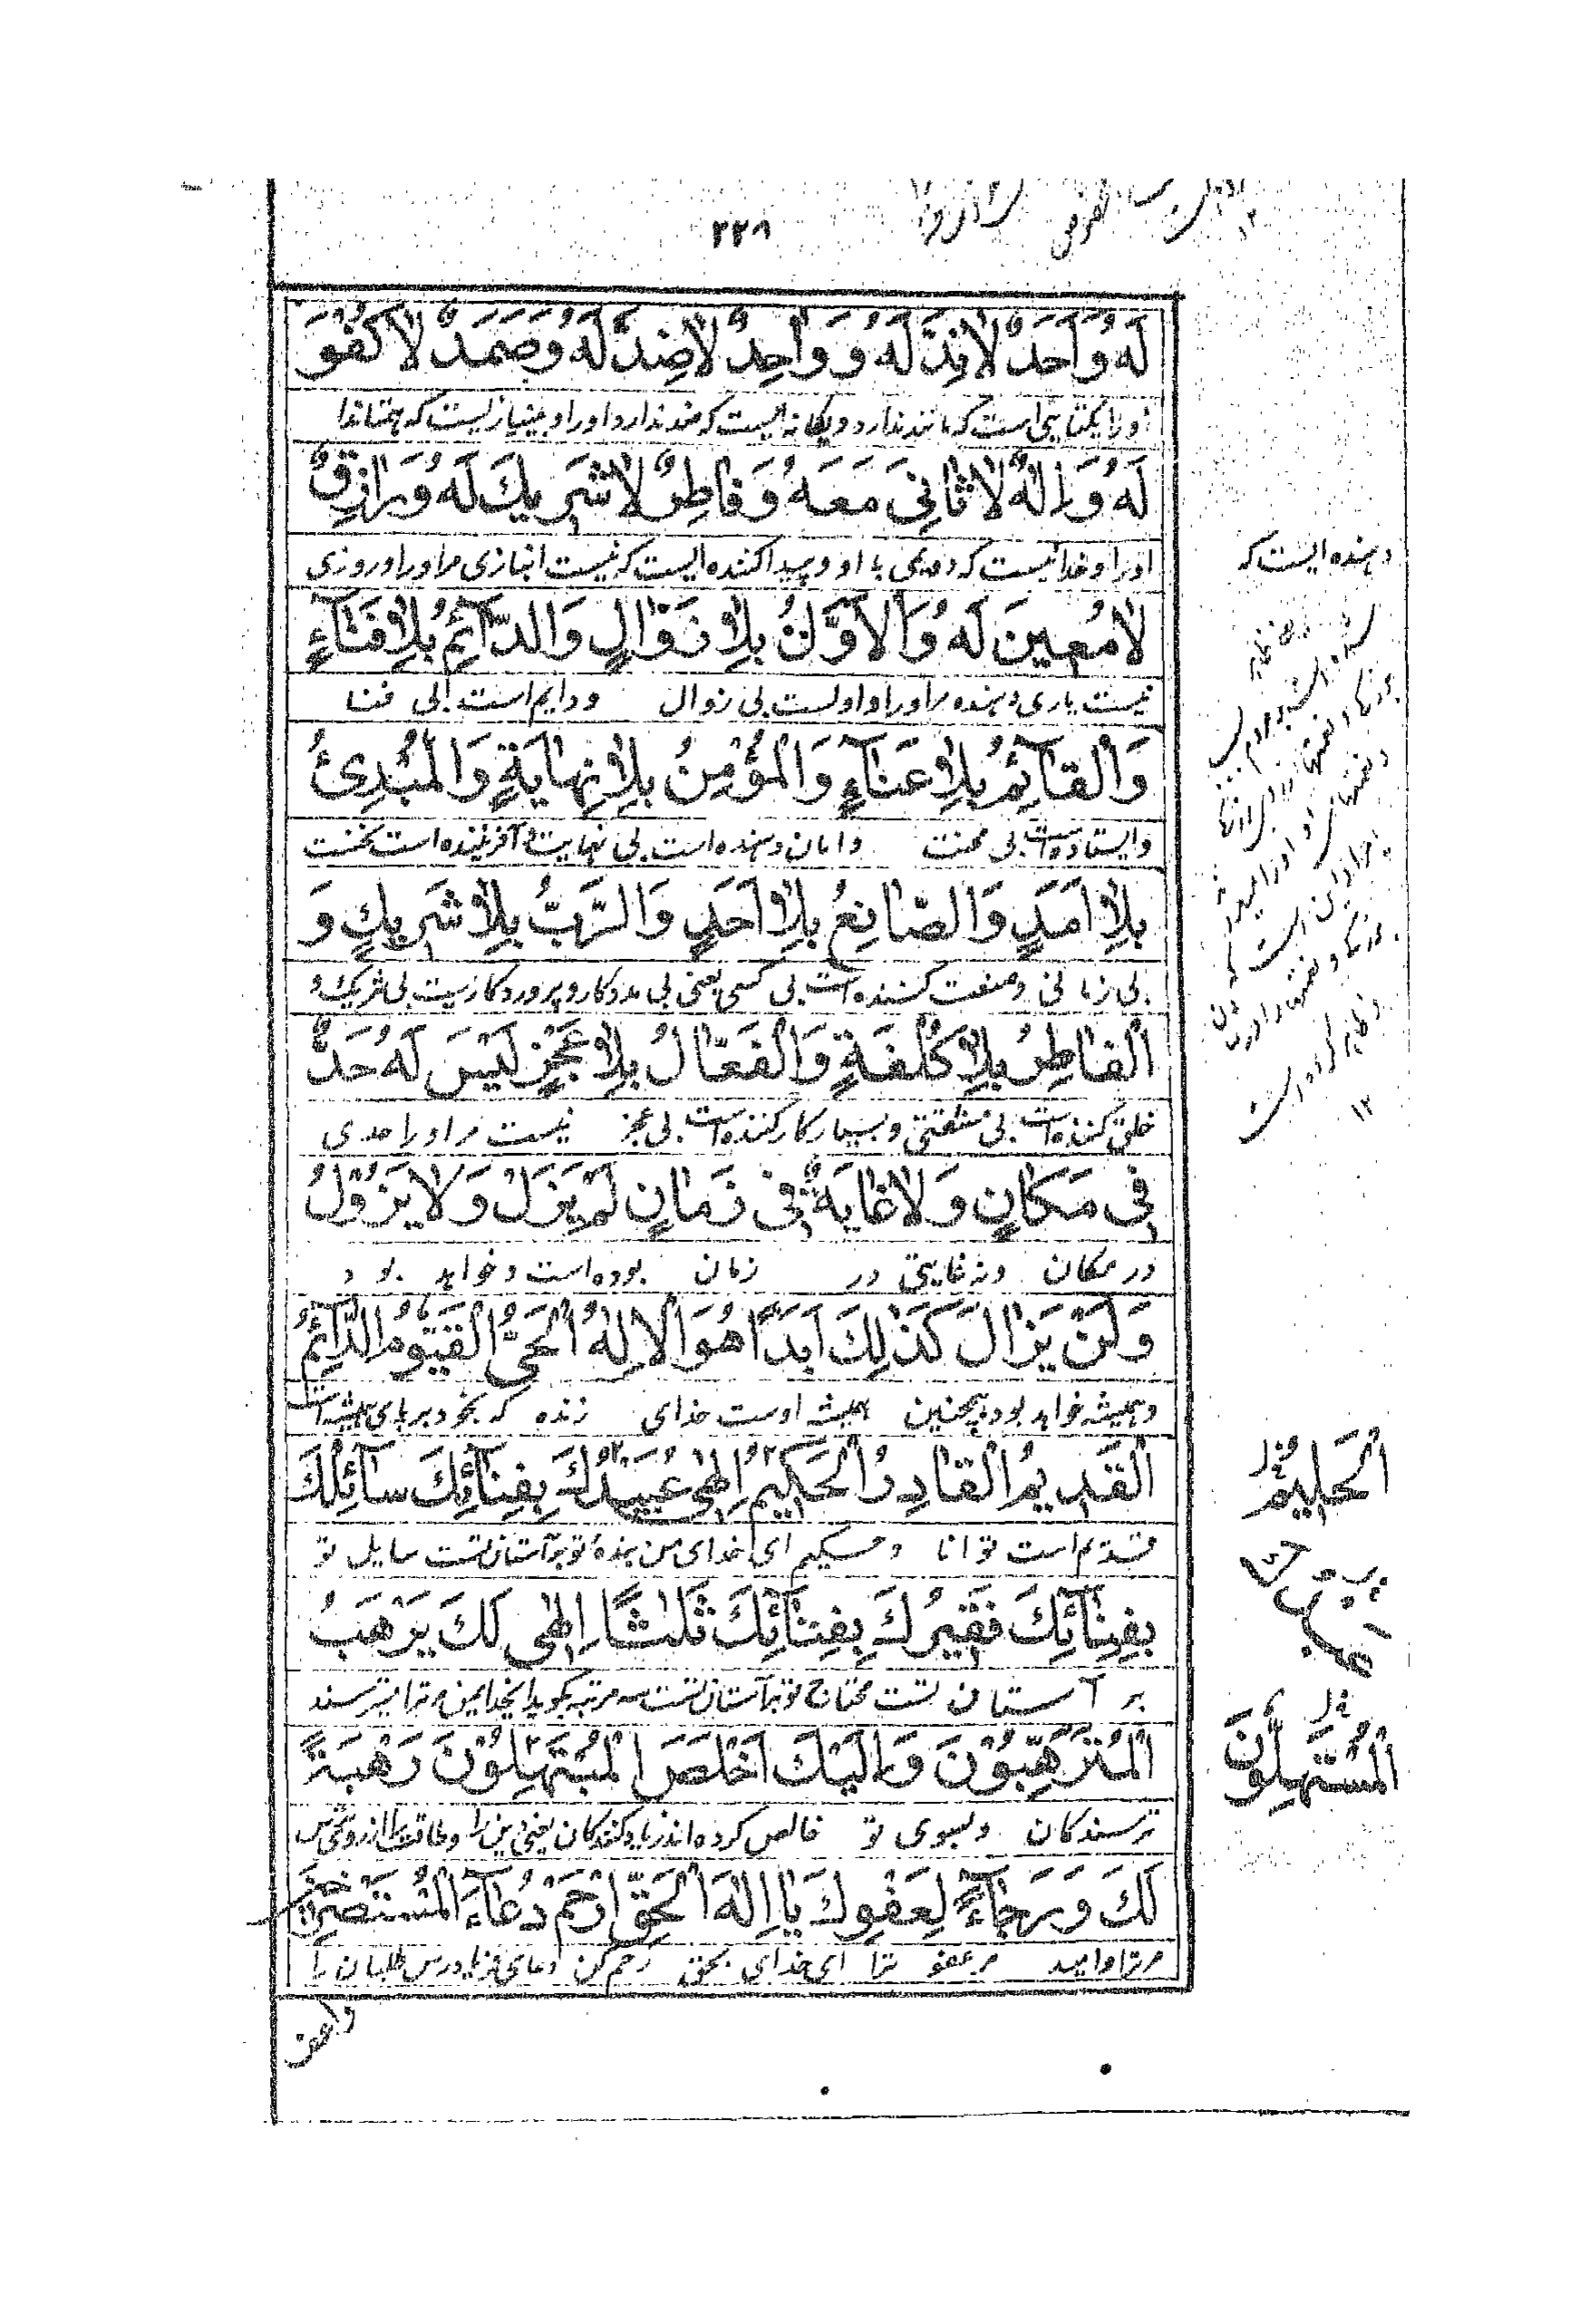 ٢٢٨
لَهُ وَاَحَدٌ لَانِدَّ لَهُ وَ وَاحِدٌ لَاضِدَّ لَهُ وَصَمَدٌ لَا كُفُوَ
اورا یکتایی است که مانند ندارد و یگانه ایست که ضد ندارد او را و بینیازیست که همتا ندا
لَهُ وَاِلٰهٌ لَا ثَانِیَ مَعَهُ وَفَاطِرٌ لَا شَرِيكَ لَهُ وَرَازِقٌ
اورا و خدائیست که دویمی با او و پیدا کننده ایست که نیست انبازی مر او را و روزی
دهنده ایست که
لَامُعِينَ لَهُ وَالْاَوَّلُ بِلَا زَوَالٍ وَالدَّآئِمُ بِلَا فَنَآءٍ
نیست یاری دهنده مر او را و اولست بی زوال و دایم است بی فنا
وَالْقَآئِمُ بِلَا عَنَآءٍ وَالْمُؤْمِنُ بِلَا نِهَايَةٍ وَالْمُبْدِئُ
و ایستاده است بی محنت و امان دهنده است بی نهایت و آفریننده است نخست
بِلَا اَمَدٍ وَالصَّانِعُ بِلَا اَحَدٍ وَالرَّبُّ بِلَا شَرِيكٍ وَ
بی زمانی و صنعت کننده است بی کسی یعنی بی مددکار و پروردگاریست بی شریک و
الْفَاطِرُ بِلَا كُلْفَةٍ وَالْفَعَّالُ بِلَا عَجْزٍ لَيْسَ لَهُ حَدٌّ
خلق کننده است بی مشقتی و بسیار کار کننده است بی عجز نیست مر او را حدی
فِى مَكَانٍ وَلَا غَايَةٌ فِى زَمَانٍ لَمْ يَزَلْ وَلَا يَزُولُ
در مکان و نه غایتی در زمان بوده است و خواهد بود
وَلَنْ يَزَالَ كَذٰلِكَ اَبَدًا هُوَ الْاِلٰهُ الْحَىُّ الْقَيُّومُ الدَّآئِمُ
و همیشه خواهد بود همچنین همیشه اوست خدای زنده که بخود برپای همیشه است
الْقَدِيمُ الْقَادِرُ الْحَكِيمُ اِلٰهِى عُبَيْدُكَ بِفِنَآئِكَ سَآئِلُكَ
الْحَلِيمُ
قدیم است توانا و حکیم ای خدای من بنده تو بر آستان تست سایل تو
بِفِنَآئِكَ فَقِيرُكَ بِفِنَآئِكَ ثَلٰثًا اِلٰهِى لَكَ يَرْهَبُ
بر آستان تست محتاج تو بر آستان تست سه مرتبه بگوید ایخدای من ترا میترسند
الْمُتَرَهِّبُونَ وَاِلَيْكَ اَخْلَصَ الْمُبْتَهِلُونَ رَهْبَةً
الْمُسْتَهِلُّونَ
ترسندکان و بسوی تو خالص کرده اند
لَكَ وَرَجَآءً لِعَفْوِكَ يَا اِلٰهَ الْحَقِّ ارْحَمْ دُعَآءَ الْمُسْتَصْرِخِينَ
مر ترا و امید مر عفو ترا ای خدای بحق رحم کن دعای فریادرس طلبان را
واعف